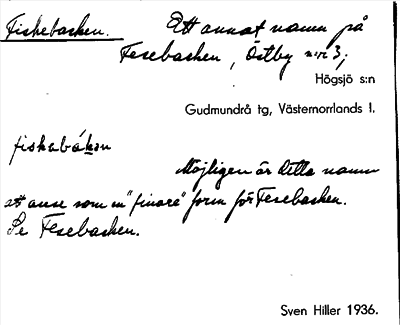 Fiskebacken. Ett annat namn på
Fesebacken, Östby n:r 3;
Högsjö s:n
Gudmundrå tg, Västernorrlands l.
fiskəbák̲ən
Möjligen är detta namn
att anse som en "finare" form för Fesebacken.
Se Fesebacken.
Sven Hiller 1936.